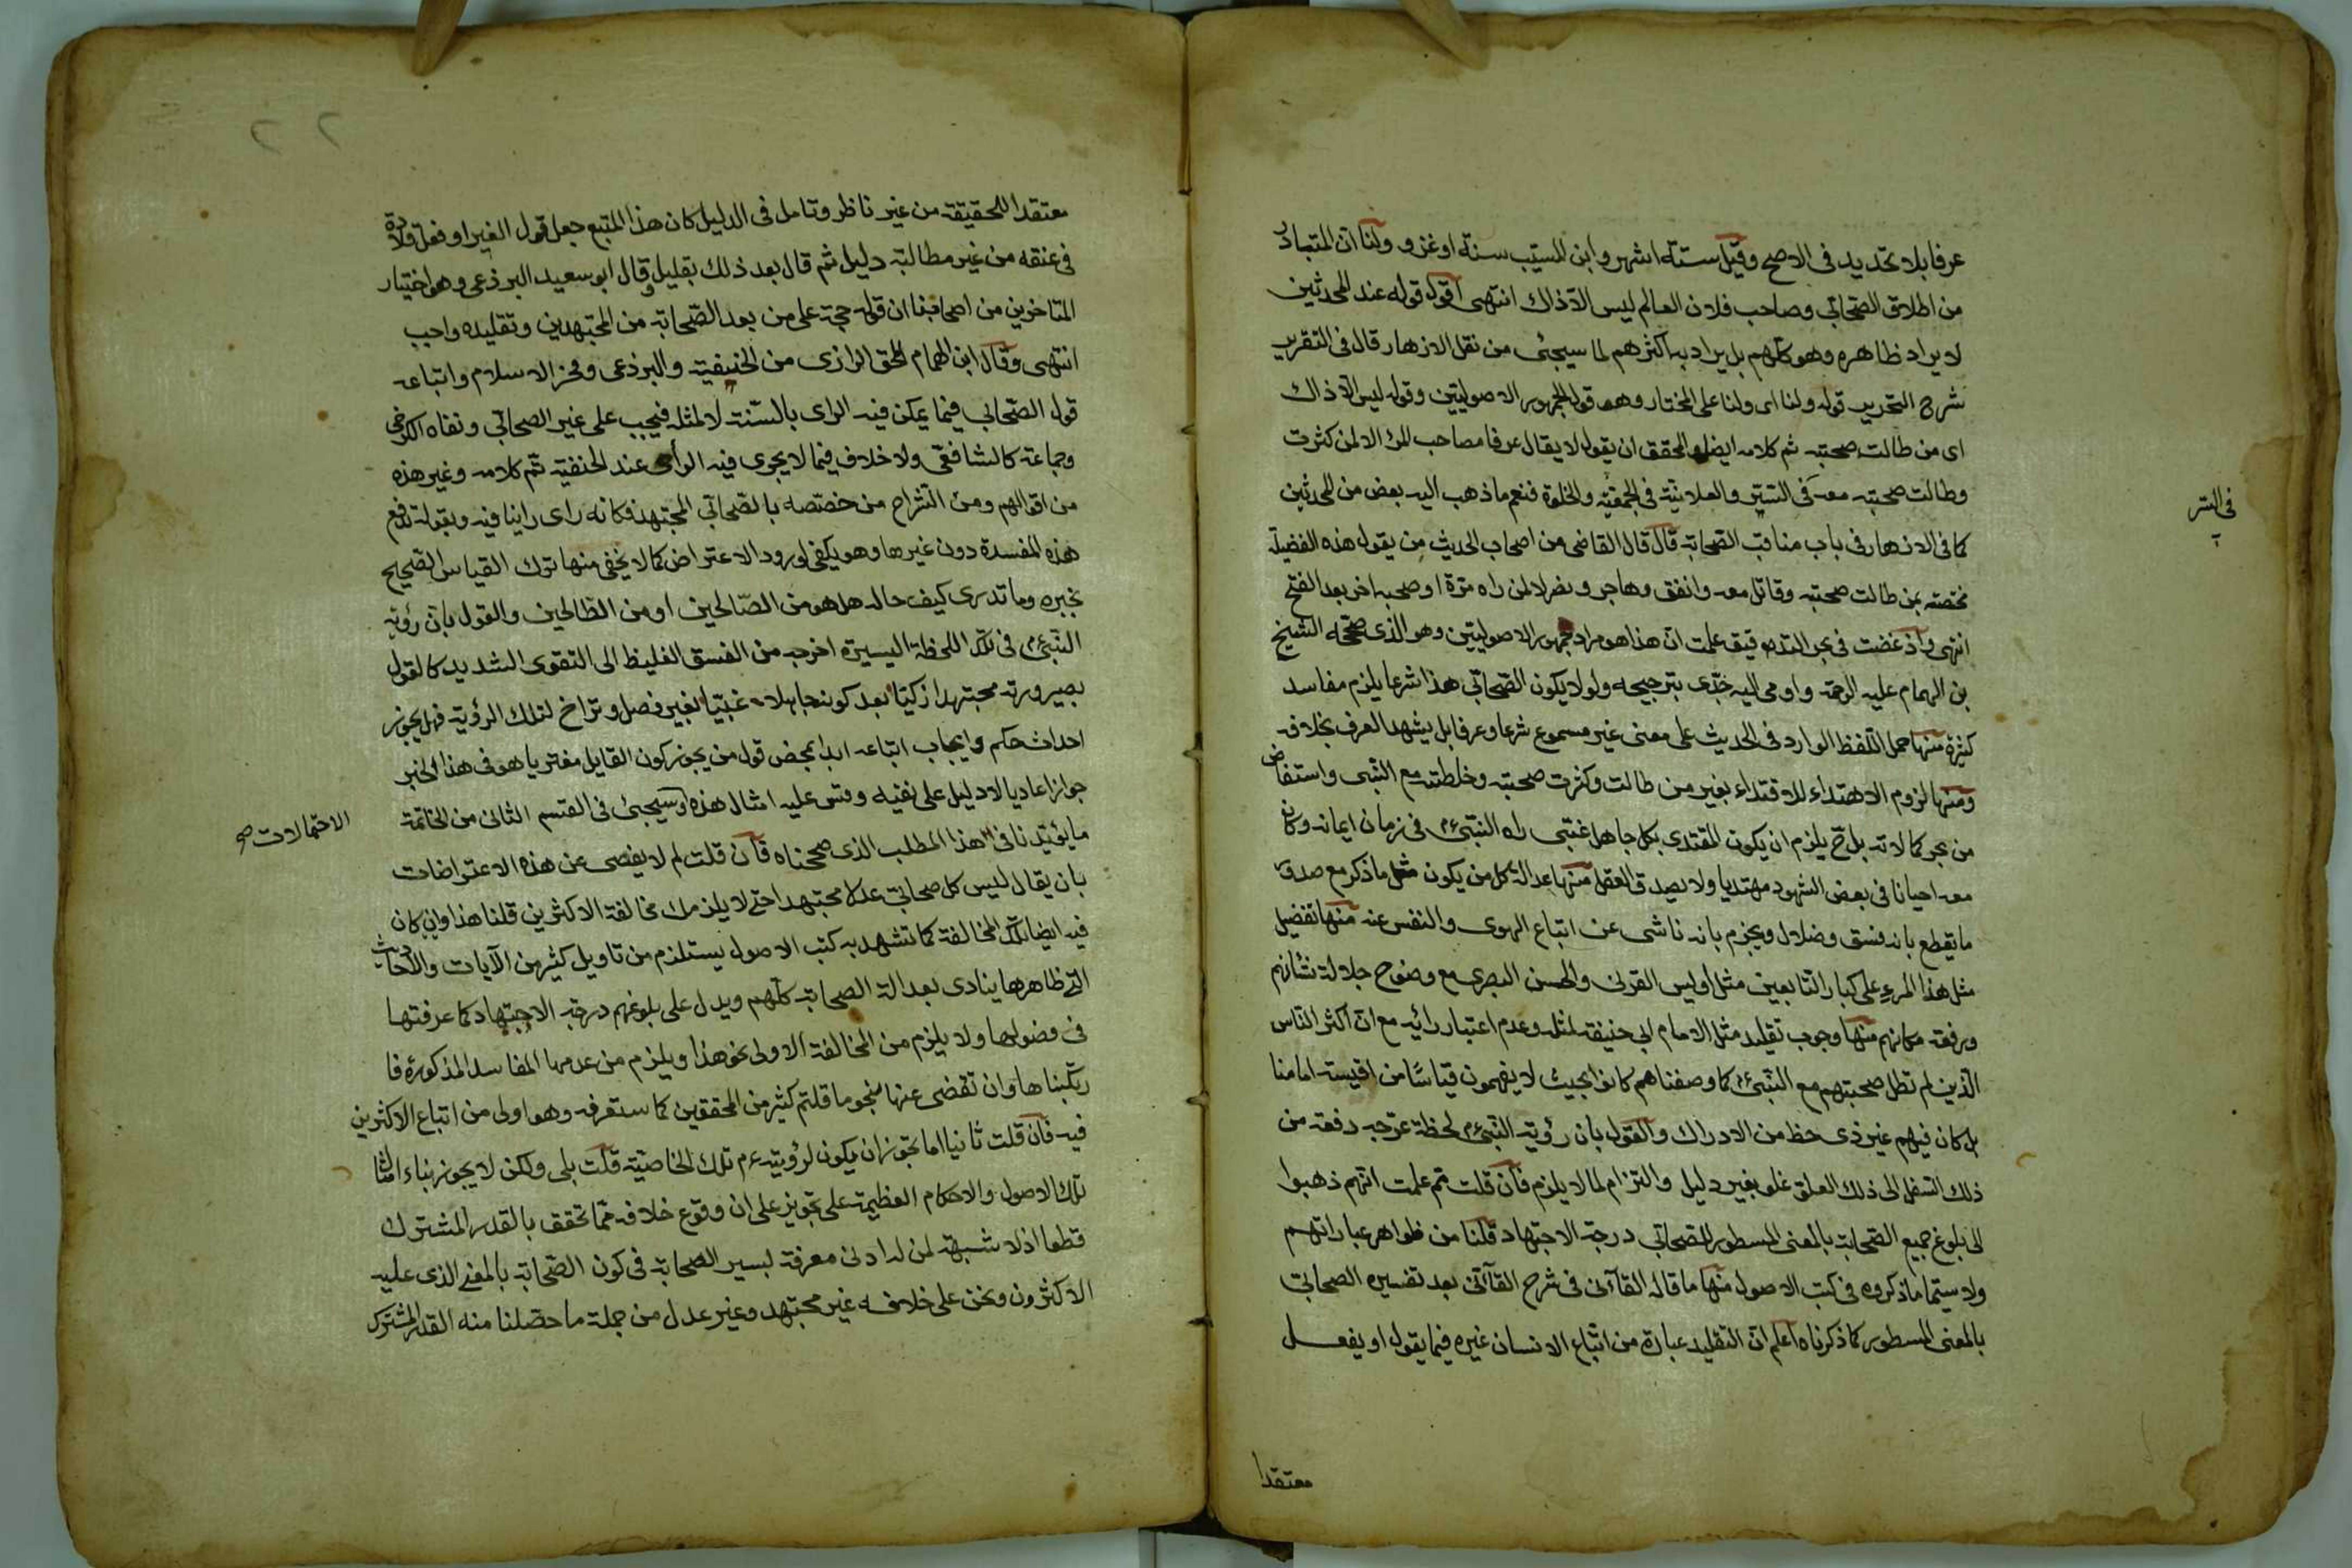 عرفا بلا تحديد فى الاصح وقيل ستة اشهر وابن المسيب سنة او غزو ولنا ان المتبادر
من اطلاق الصّحابىّ وصاحب فلان العالم ليس الّا ذاك انتهى اقول قوله عند المحدثين
لا يراد ظاهره وهو كلّهم بل يراد به اكثرهم لما سيجئ من نقل الازهار قال فى التقرير
شرح التحرير قوله ولنا اى ولنا على المختار وهو قول الجمهور الاصوليين وقوله ليس الّا ذاك
اى من طالت صحبته ثم كلامه ايضا المحقق ان يقول لا يقال عرفا مصاحب المرء الا لمن كثرت
وطالت صحبته معه فى السّتر والعلانية فى الجمعيّة والخلوة فنعم ما ذهب اليه بعض من المحدثين
فى السّر
كما فى الازهار فى باب مناقب الصّحابة قال قال القاضى من اصحاب الحديث من يقول هذه الفضيلة
مختصّة بمن طالت صحبته وقاتل معه وانفق وهاجر ونصر لا لمن راه مرّة او صحبه اخر بعد الفتح
انتهى واذ غضت فى بحر التدقيق علمت انّ هذا هو مراد جمهور الاصوليين وهو الذى صحّحه الشيخ
بن الهمام عليه الرحمة واومى اليه جدّى بترجيحه ولو لا يكون الصّحابىّ هذا شرعا يلزم مفاسد
كثيرة منها حمل اللفظ الوارد فى الحديث على معنى غير مسموع شرعا وعرفا بل يشهد العرف بخلافه
ومنها لزوم الاهتداء للاقتداء بغير من طالت وكثرت صحبته وخلطته مع النّبى واستفاض
من بحر كمالاته بل ح يلزم ان يكون المقتدى بكل جاهل غبىّ راه النبىّ ءم فى زمان ايمانه وكان
معه احيانا فى بعض الشهود مهتديا ولا يصدق العقل منها عدالة كل من يكون مثل ما ذكر مع صدق
ما يقطع بانه فسق وضلال ويجزم بانه ناشى عن اتباع الهوى والنفس عنه منها تفضيل
مثل هذا المرء على كبار التابعين مثل اويس القرنى والحسن البصرى مع وضوح جلالة شانهم
ورفعة مكانهم منها وجوب تقليد مثل الامام ابى حنيفة لمثله وعدم اعتبار رائيه مع انّ اكثر النّاس
الّذين لم تطل صحبتهم مع النّبىّ ءم كما وصفناهم كانوا بحيث لا يفهمون قياسًا من اقيسة امامنا
بل كان فيهم غير ذى حظ من الادراك والقول بان رؤية النّبىّ ءم لحظة عرّجه دفعة من
ذلك السّفل الى ذلك العلوّ غلوّ بغير دليل والتزام لما لا يلزم فان قلت ثم علمت انّهم ذهبوا
الى بلوغ جميع الصّحابة بالمعنى المسطور للصحابى درجة الاجتهاد قلنا من ظواهر عباراتهم
ولا سيّما ما ذكروه فى كتب الاصول منها ما قاله القاآنى فى شرح القاآنى بعد تفسيره الصحابىّ
بالمعنى المسطور كما ذكرناه اعلم انّ التقليد عبارة من اتباع الانسان غيره فيما يقول او يفعل
معتقدا
٢٢
معتقدا للحقيقة من غير ناظر وتامل فى الدليل كان هذا المتبع جعل قول الغير او فعله قلادة
فى عنقه من غير مطالبة دليل ثم قال بعد ذلك بقليل وقال ابو سعيد البرذعى وهو اختيار
المتاخرين من اصحابنا ان قوله حجة على من بعد الصّحابة من المجتهدين وتقليده واجب
انتهى وقال ابن الهمام الحق الرازى من الحنيفية والبرذعى وفخر الاسلام واتباعه
قول الصّحابى فيما يمكن فيه الراى بالسّنة لا لمثله فيجب على غير الصحابىّ ونفاه الكرخى
وجماعة كالشافعىّ ولا خلاف فيما لا يجرى فيه الرأى عند الحنفية تمّ كلامه وغير هذه
من اقوالهم ومن الشراح من خصّصه بالصّحابىّ المجتهد فكانه راى راينا فيه وبقوله تدفع
هذه المفسدة دون غيرها وهو يكفى لورود الاعتراض كما لا يخفى منها ترك القياس الصّحيح
بخبره وما تدرى كيف حاله هل هو من الصّالحين او من الطالحين والقول بانّ رؤية
النّبىّ ءم فى تلك اللحظة اليسيرة اخرجه من الفسق الغليظ الى التقوى الشديد كالقول
بصيرورته مجتهدا زكيّا بعد كونه جاهلا غبيّا بغير فصل وتراخ لتلك الرؤية فهل يجوز
احداث حكم وايجاب اتباعه ابدا بمحض قول من يجوز كون القايل مفتريا هو فى هذا الخبر
جوازا عاديا لا دليل على نفيه وقس عليه امثال هذه وسيجئ فى القسم الثانى من الخاتمة
الاحتمالات صح
ما يؤيّدنا فى هذا المطلب الذى صححناه فان قلت لم لا يفصى عن هذه الاعتراضات
بان يقال ليس كل صحابىّ عدلا مجتهدا حتى لا يلزمك مخالفة الاكثرين قلنا هذا وان كان
فيه ايضا تلك المخالفة كما تشهد به كتب الاصول يستلزم من تاويل كثير من الآيات والاحاديث
التى ظاهرها ينادى بعدالة الصحابة كلّهم ويدل على بلوغهم درجة الاجتهاد كما عرفتها
فى فصولها ولا يلزم من المخالفة الاولى نحو هذا ويلزم من عدمها المفاسد المذكورة فا
رتكبناها وان تفصّى عنها بنحو ما قلتم كثير من المحققين كما ستعرفه وهو اولى من اتباع الاكثرين
فيه فان قلت ثانيا اما يجوز ان يكون لرؤيته ءم تلك الخاصيّة قلت بلى ولكن لا يجوز بناء امثال
تلك الاصول والاحكام العظيمة على تجويز على ان وقوع خلافه ممّا تحقق بالقدر المشترك
قطعا اذ لا شبهة لمن له ادنى معرفة لسير الصحابة فى كون الصّحابة بالمعنى الذى عليه
الاكثرون ونحن على خلافه غير مجتهد وغير عدل من جملة ما حصّلنا منه القدر المشترك